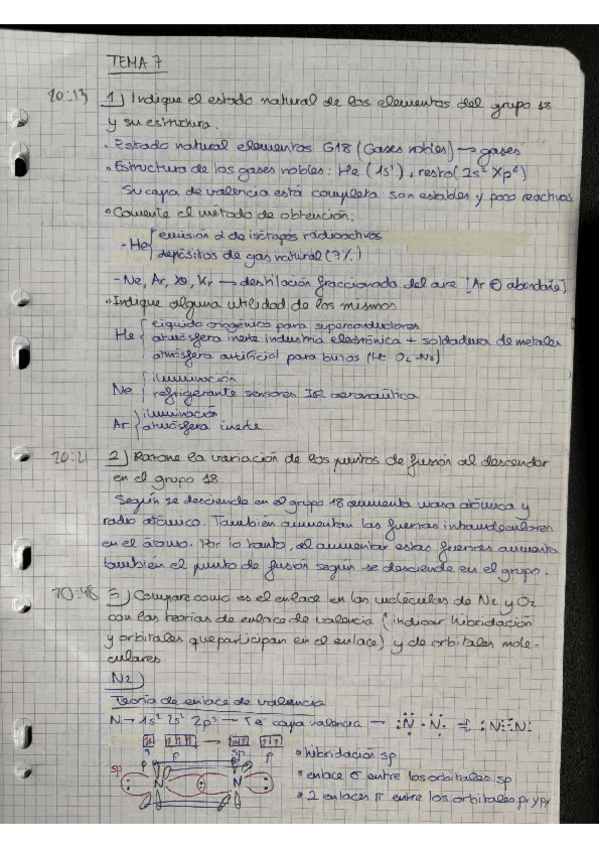 TEMA 7
20:13 1) Indique el estado natural de los elementos del grupo 18
y su estructura.
• Estado natural elementos G18 (Gases nobles) → gases
• Estructura de los gases nobles: He (1s¹), resto (2s² Xp⁶)
Su capa de valencia está completa son estables y poco reactivos
• Comente el metodo de obtención:
- He { emisión α de isótopos radioactivos
depósitos de gas natural (7%)
- Ne, Ar, Xe, Kr → destilación fraccionada del aire [Ar ⊕ abondante]
• Indique alguna utilidad de los mismos
He { líquido criogénico para superconductores
atmósfera inerte industria electrónica + soldadura de metales
atmósfera artificial para buzos (He O₂-N₂)
Ne { iluminación
refrigerante sensores IR aeronaútica
Ar { iluminación
atmósfera inerte
20:21 2) Razone la variación de los puntos de fusión al descender
en el grupo 18
Según se desciende en el grupo 18 aumenta masa atómica y
radio atómico. También aumentan las fuerzas intramoleculares
en el átomo. Por lo tanto, al aumentar estas fuerzas aumenta
también el punto de fusión según se desciende en el grupo.
20:48 3) Compare como es el enlace en las moléculas de N₂ y O₂
con las teorías de enlace de valencia (indicar hibridación
y orbitales que participan en el enlace) y de orbitales mole-
culares
N₂)
Teoría de enlace de valencia
N → 1s² 2s² 2p³ → 5e⁻ capa valencia → :N· ·N: :N≡N:
s p → sp p
• hibridación sp
sp p N N
• enlace σ entre los orbitales sp
• 2 enlaces π entre los orbitales py py